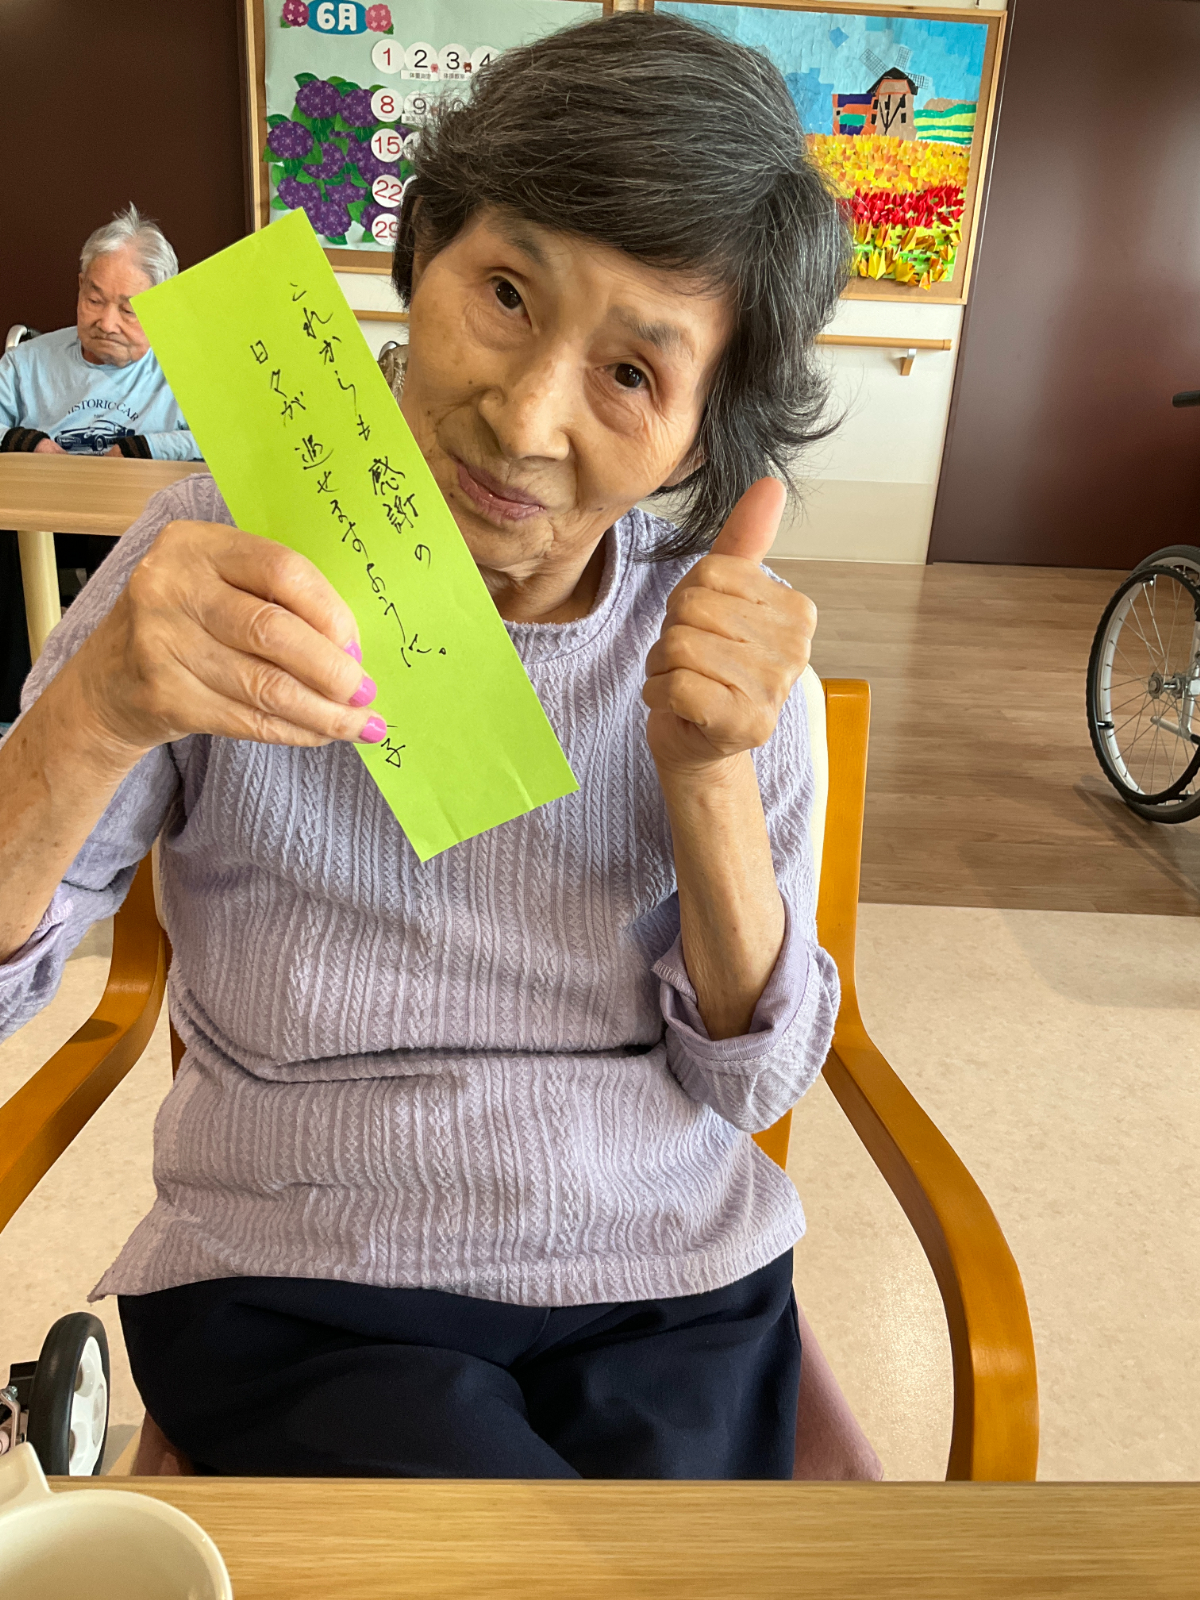 6月
1 2 3 4
8 9 10
15
22
29
これからも感謝の
日々が過せますように。
子
HISTORIC CAR